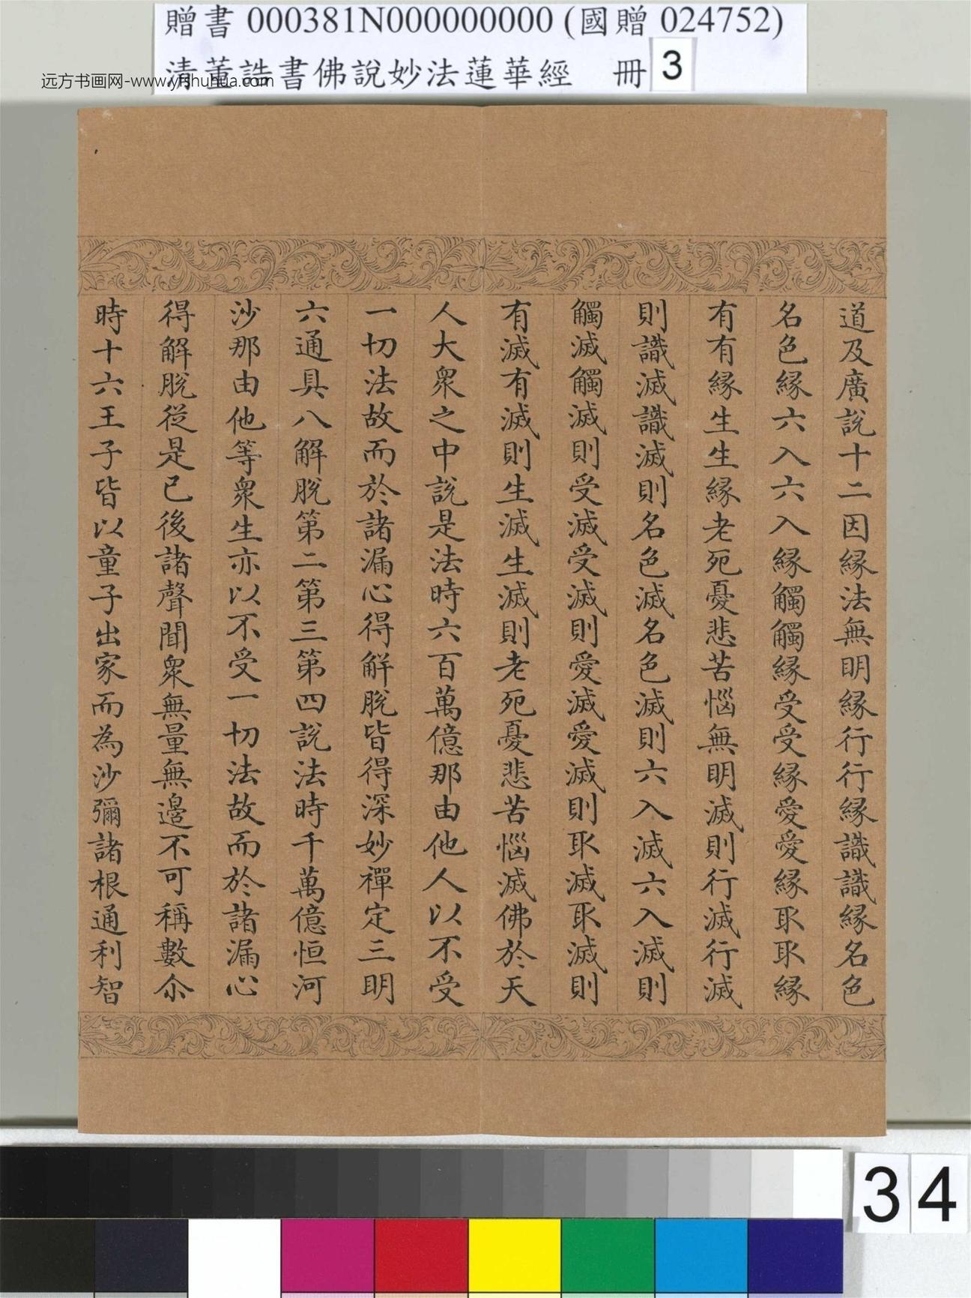 贈書 000381N000000000 (國贈 024752)
清董誥書佛說妙法蓮華經 冊 3
远方书画网-www.yfshuhua.com
道及廣說十二因緣法無明緣行行緣識識緣名色
名色緣六入六入緣觸觸緣受受緣愛愛緣取取緣
有有緣生生緣老死憂悲苦惱無明滅則行滅行滅
則識滅識滅則名色滅名色滅則六入滅六入滅則
觸滅觸滅則受滅受滅則愛滅愛滅則取滅取滅則
有滅有滅則生滅生滅則老死憂悲苦惱滅佛於天
人大衆之中說是法時六百萬億那由他人以不受
一切法故而於諸漏心得解脫皆得深妙禪定三明
六通具八解脫第二第三第四說法時千萬億恒河
沙那由他等衆生亦以不受一切法故而於諸漏心
得解脫從是已後諸聲聞衆無量無邊不可稱數尒
時十六王子皆以童子出家而為沙彌諸根通利智
34